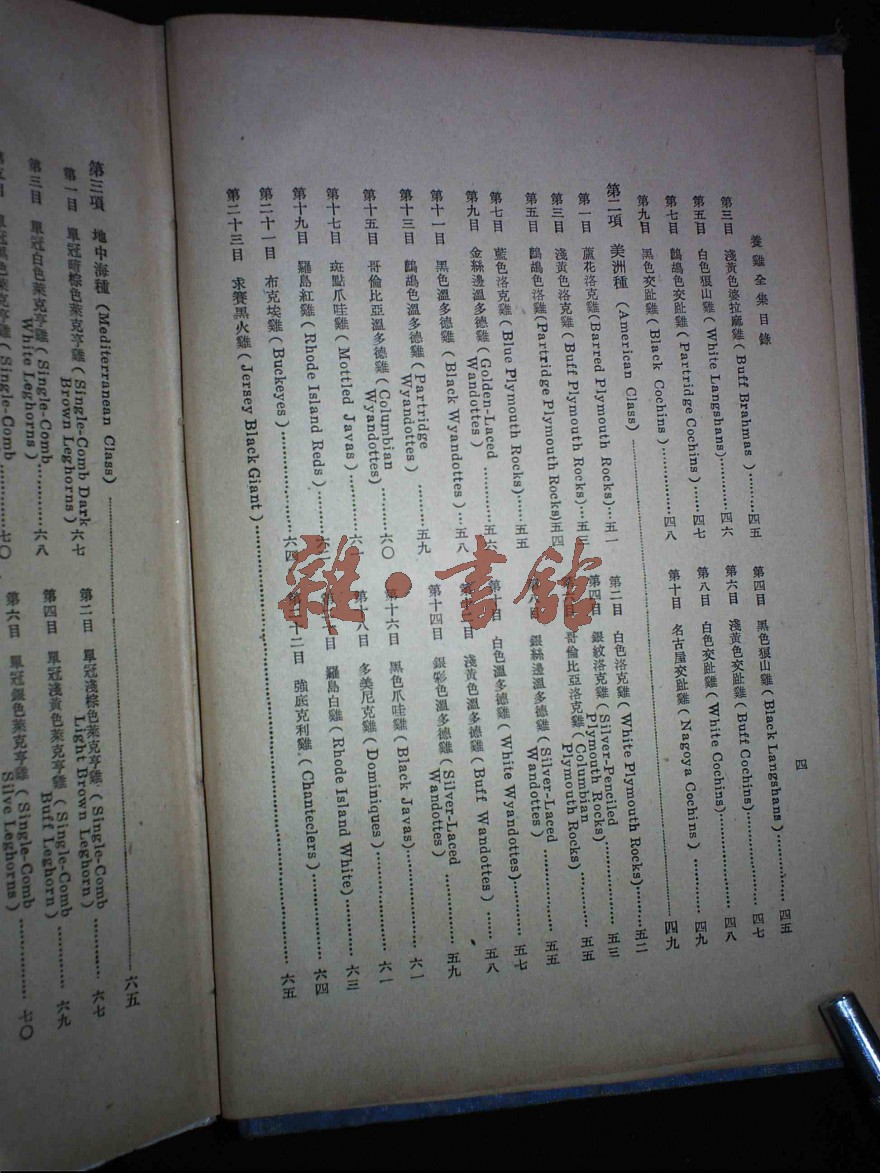 養雞全集目錄
四
第三目 淺黃色婆拉麻雞(Buff Brahmas)……四五
第四目 黑色狼山雞(Black Langshans)……四五
第五目 白色狼山雞(White Langshans)……四六
第六目 淺黃色交趾雞(Buff Cochins)……四七
第七目 鷓鴣色交趾雞(Partridge Cochins)……四七
第八目 白色交趾雞(White Cochins)……四八
第九目 黑色交趾雞(Black Cochins)……四八
第十目 名古屋交趾雞(Nagoya Cochins)……四九
第二項 美洲種(American Class)……四九
第一目 蘆花洛克雞(Barred Plymouth Rocks)…五一
第二目 白色洛克雞(White Plymouth Rocks)……五二
第三目 淺黃色洛克雞(Buff Plymouth Rocks)…五三
第四目 銀紋洛克雞(Silver-Penciled Plymouth Rocks)……五三
第五目 鷓鴣色洛雞(Partridge Plymouth Rocks)五四
哥倫比亞洛克雞(Columbian Plymouth Rocks)……五五
第七目 藍色洛克雞(Blue Plymouth Rocks)……五五
第八目 銀絲邊溫多德雞(Silver-Laced Wandottes)……五五
第九目 金絲邊溫多德雞(Golden-Laced Wandottes)……五六
第十目 白色溫多德雞(White Wyandottes)……五七
第十一目 黑色溫多德雞(Black Wyandottes)…五八
第十二目 淺黃色溫多德雞(Buff Wandottes)……五八
第十三目 鷓鴣色溫多德雞(Partridge Wyandottes)……五九
第十四目 銀彩色溫多德雞(Silver-Laced Wandottes)……五九
第十五目 哥倫比亞溫多德雞(Columbian Wyandottes)……六〇
第十六目 黑色爪哇雞(Black Javas)……六一
第十七目 斑點爪哇雞(Mottled Javas)……六一
第十八目 多美尼克雞(Dominiques)……六一
第十九目 羅島紅雞(Rhode Island Reds)……六二
羅島白雞(Rhode Island White)……六三
第二十一目 布克埃雞(Buckeyes)……六四
第二十二目 強底克利雞(Chanteclers)……六四
第二十三目 求賽黑火雞(Jersey Black Giant)……六五
第三項 地中海種(Mediterranean Class)……六五
第一目 單冠暗棕色萊克亨雞(Single-Comb Dark Brown Leghorns)六七
第二目 單冠淺棕色萊克亨雞(Single-Comb Light Brown Leghorn)……六七
第三目 單冠白色萊克亨雞(Single-Comb White Leghorns)……六八
第四目 單冠淺黃色萊克亨雞(Single-Comb Buff Leghorn)……六九
第五目 單冠黑色萊克亨雞(Single-Comb……七〇
第六目 單冠銀色萊克亨雞(Single-Comb Silve Leghorns)……七〇
雜·書館